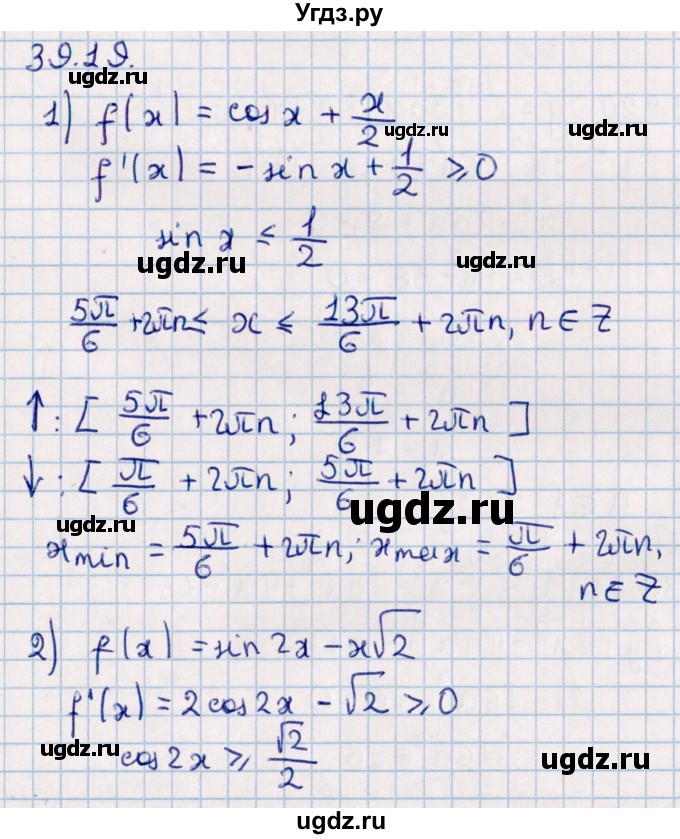 Угдз.ру
39.19.
ugdz.ru
1) f(x) = cos x + x/2
ugdz.ru ugdz.ru
f'(x) = - sin x + 1/2 ⩾ 0
sin x ≤ 1/2
ugdz.ru ugdz.ru
5π/6 + 2πn ≤ x ≤ 13π/6 + 2πn, n ∈ Z
↑: [ 5π/6 + 2πn ; 13π/6 + 2πn ]
ugdz.ru
↓: [ π/6 + 2πn ; 5π/6 + 2πn ]
ugdz.ru
x min = 5π/6 + 2πn; x max = π/6 + 2πn,
ugdz.ru
n ∈ Z
2) f(x) = sin 2x - x√2
ugdz.ru
f'(x) = 2 cos 2x - √2 ⩾ 0
ugdz.ru
cos 2x ⩾ √2/2
ugdz.ru ugdz.ru